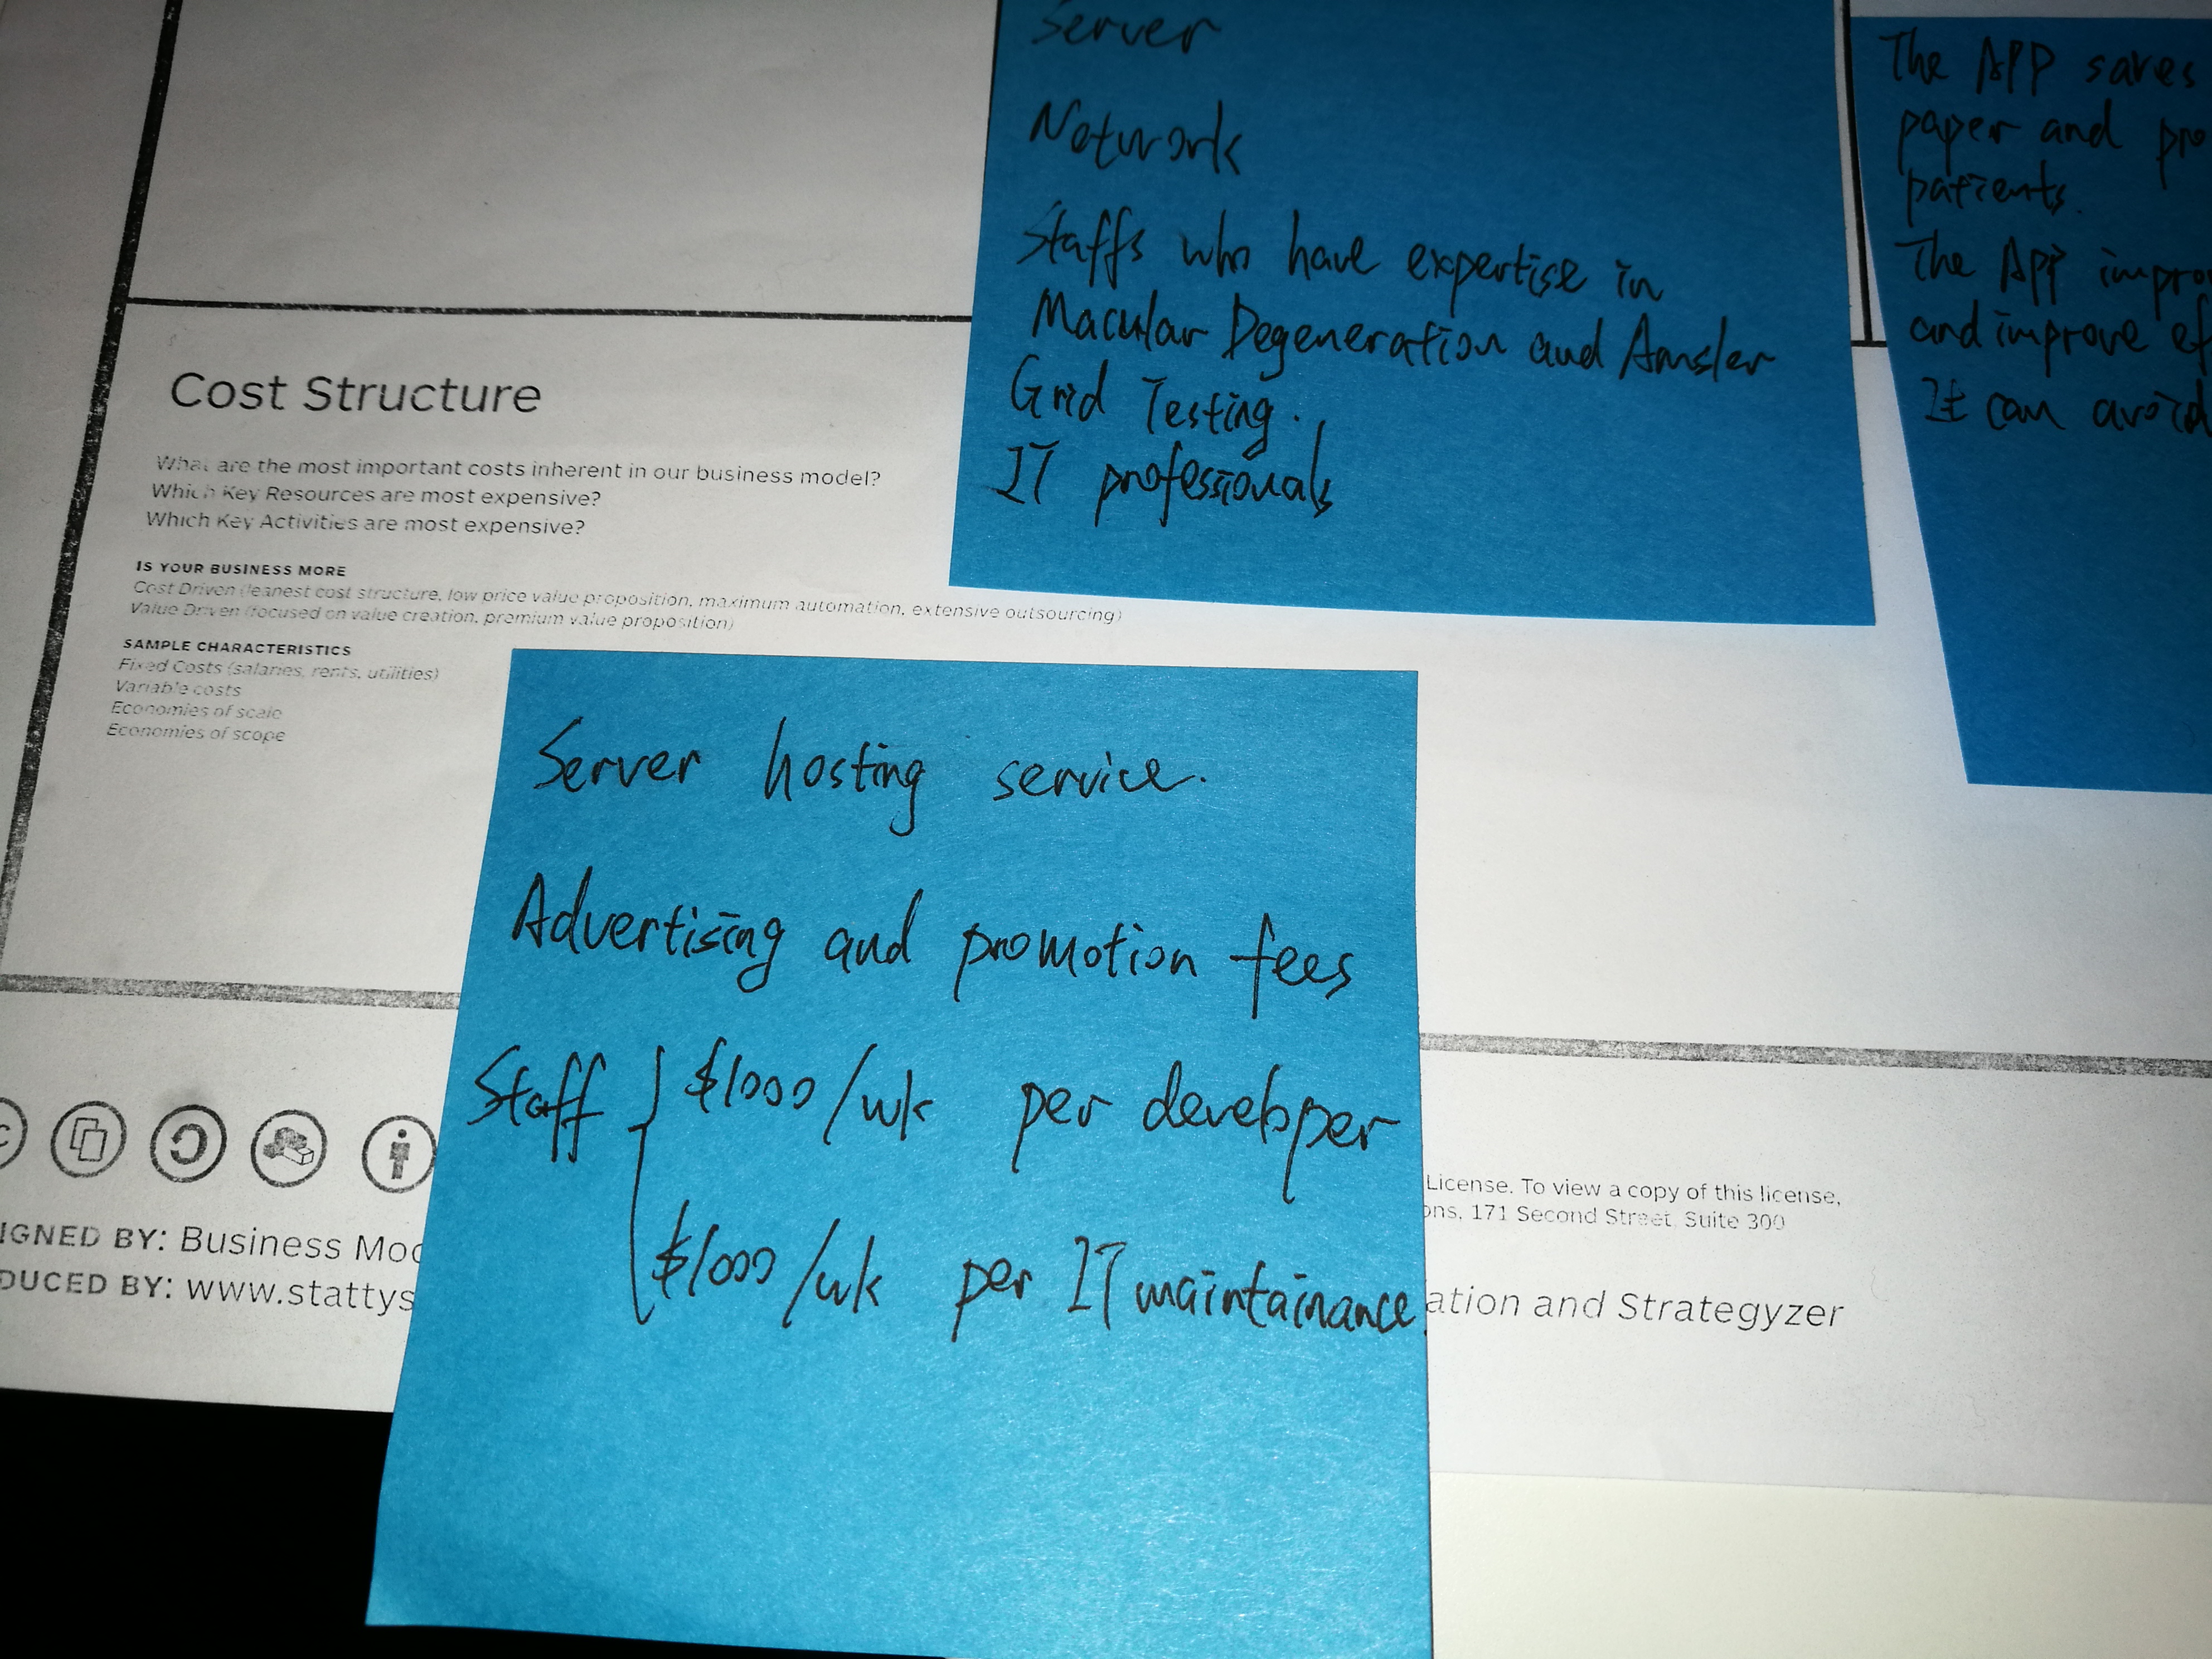 Server
Network
Staffs who have expertise in
Macular Degeneration and Amsler
Grid Testing.
IT professionals
The APP saves
paper and pro
patients.
The App impro
and improve ef
It can avoid
Cost Structure
What are the most important costs inherent in our business model?
Which Key Resources are most expensive?
Which Key Activities are most expensive?
IS YOUR BUSINESS MORE
Cost Driven (leanest cost structure, low price value proposition, maximum automation, extensive outsourcing)
Value Driven (focused on value creation, premium value proposition)
SAMPLE CHARACTERISTICS
Fixed Costs (salaries, rents, utilities)
Variable costs
Economies of scale
Economies of scope
Server hosting service.
Advertising and promotion fees
Staff $1000/wk per developer
$1000/wk per IT maintainance
IGNED BY: Business Mod
DUCED BY: www.stattys
License. To view a copy of this license,
ons, 171 Second Street, Suite 300
ation and Strategyzer